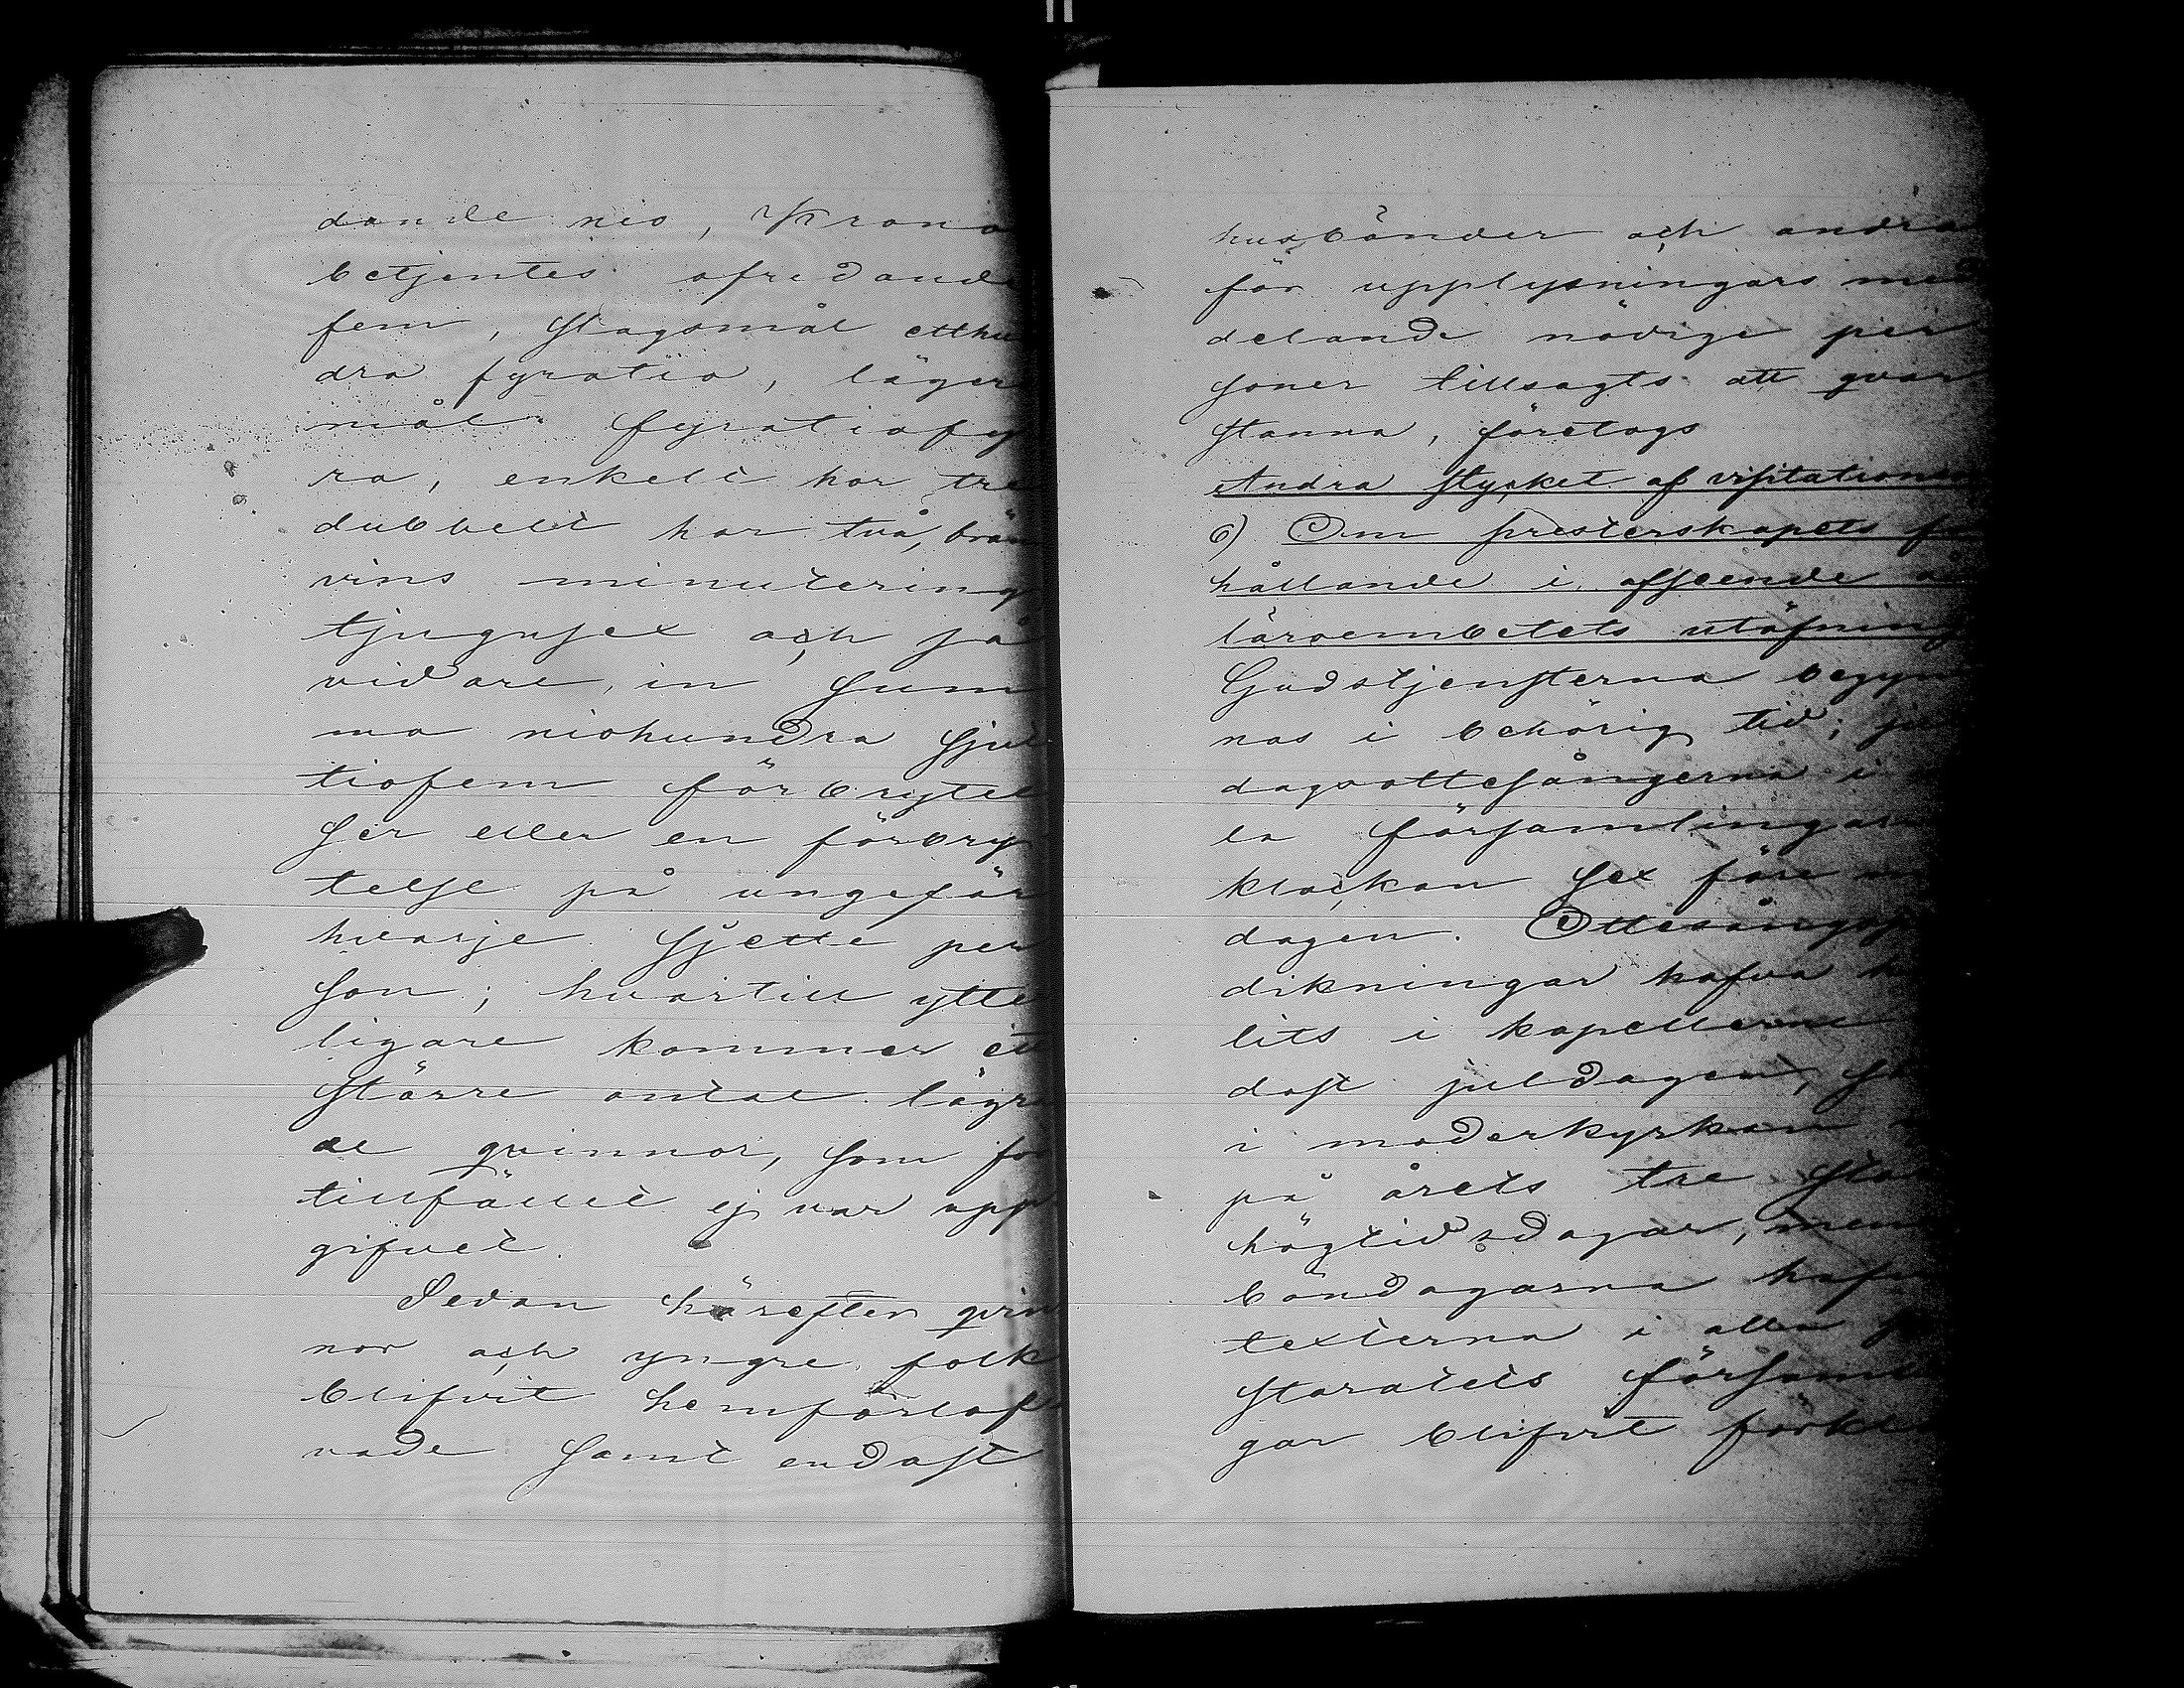 dande nio, Krono
betjentes ofredande
fem, slagsmål etthu
dra fyratio, lägers
mål fyratiofy
ra, enkelt hor tre
dubbelt hor två, brän
vins minutering
tjugusex och så
vidare, in sum
ma niohundra sjut
tiofem förbrytel
ser eller en förbry
telse på ungefär
hvarje sjette per
son; hvartill ytte
ligare kommer ett
större antal lägra
de qvinnor, som för
tillfället ej var upp
gifvet.
Sedan härefter qvin
nor och yngre folk
blifvit hemförlof
vade samt endast
husbönder och andra
för upplysningars med
delande nödige per
soner tillsagts att qvar
stanna, företogs
Andra stycket af visitationen
6) Om presterskapets för
hållande i afseende å
läroembetets utöfning
Gudstjensterna begyn
nas i behörig tid; jul
dagsottesångerna i
la församlingarn
klockan sex före m
dagen. Ottesångsp
dikningar hafva h
lits i kapellerne
dast juldagen, s
i moderkyrkan
på årets tre sto
högtidsdagar, men
böndagarna hafv
texterna i alla p
storatets församl
gar blifvit förkl